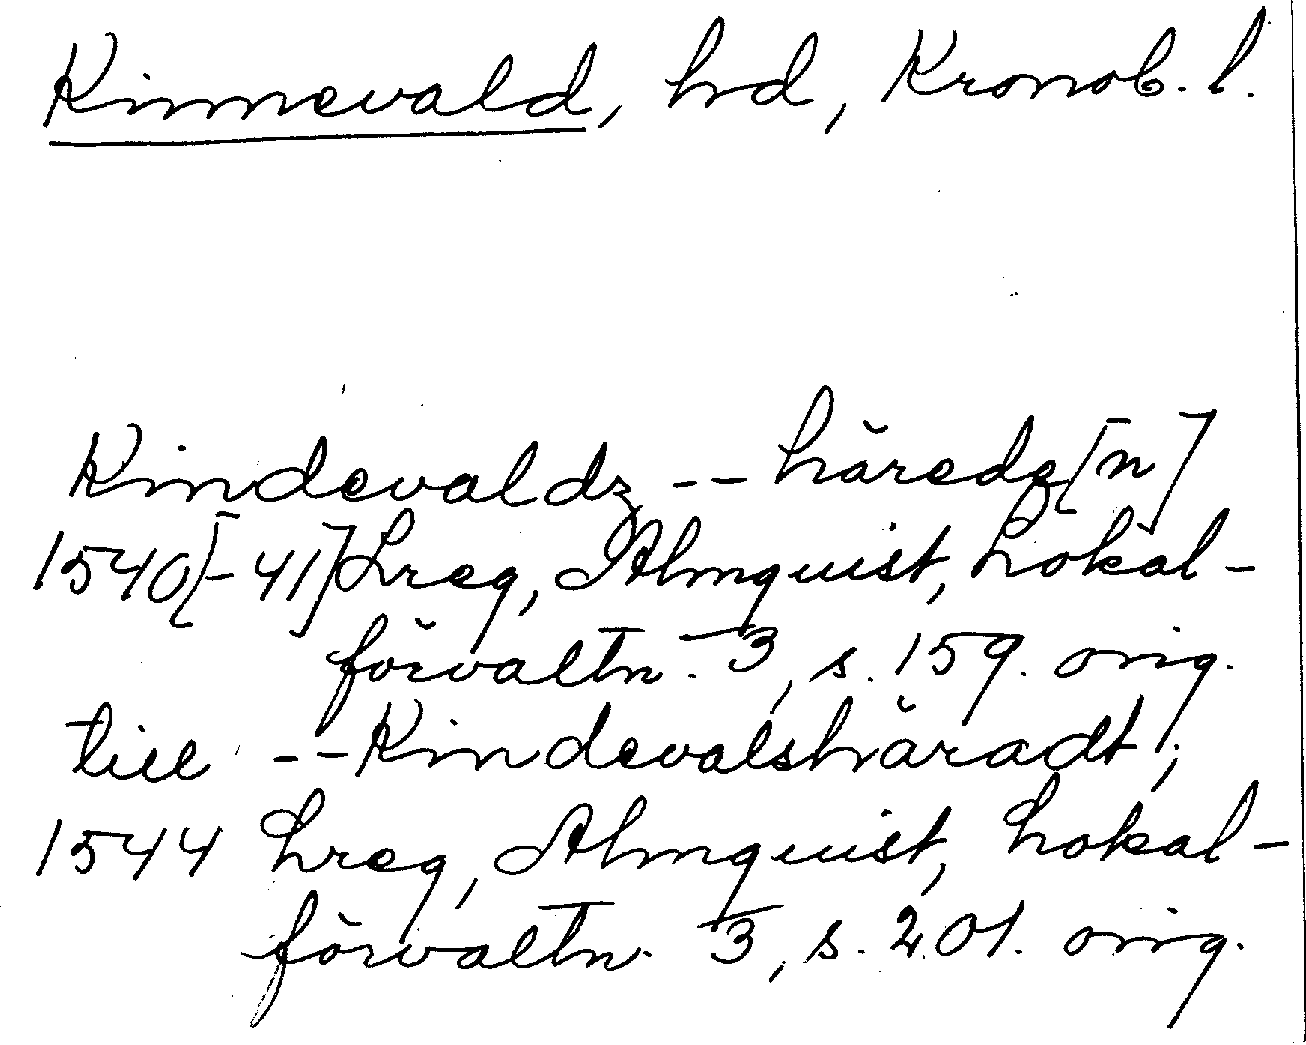 Kinnevald, hd, Kronob. l.
Kindevaldz -- häredz [n]
1540[-41] Lreg, Almquist, Lokal-
förvaltn. 3, s. 159. orig.
till -- Kindevalshäradt;
1544 Lreg, Almquist, Lokal-
förvaltn. 3, s. 201. orig.